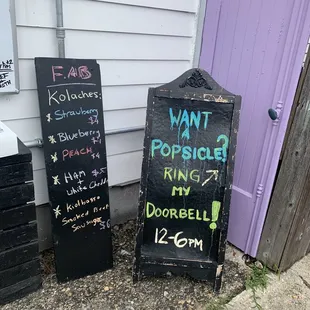 F.A.B
Kolaches:
Strawburry
Blueberry
PEACH
HAM &
White Chedda
Kielbasa
Smoked Beef
Sausage $6
WANT
A
POPSICLE?
RING
MY
DOORBELL!
12-6 PM